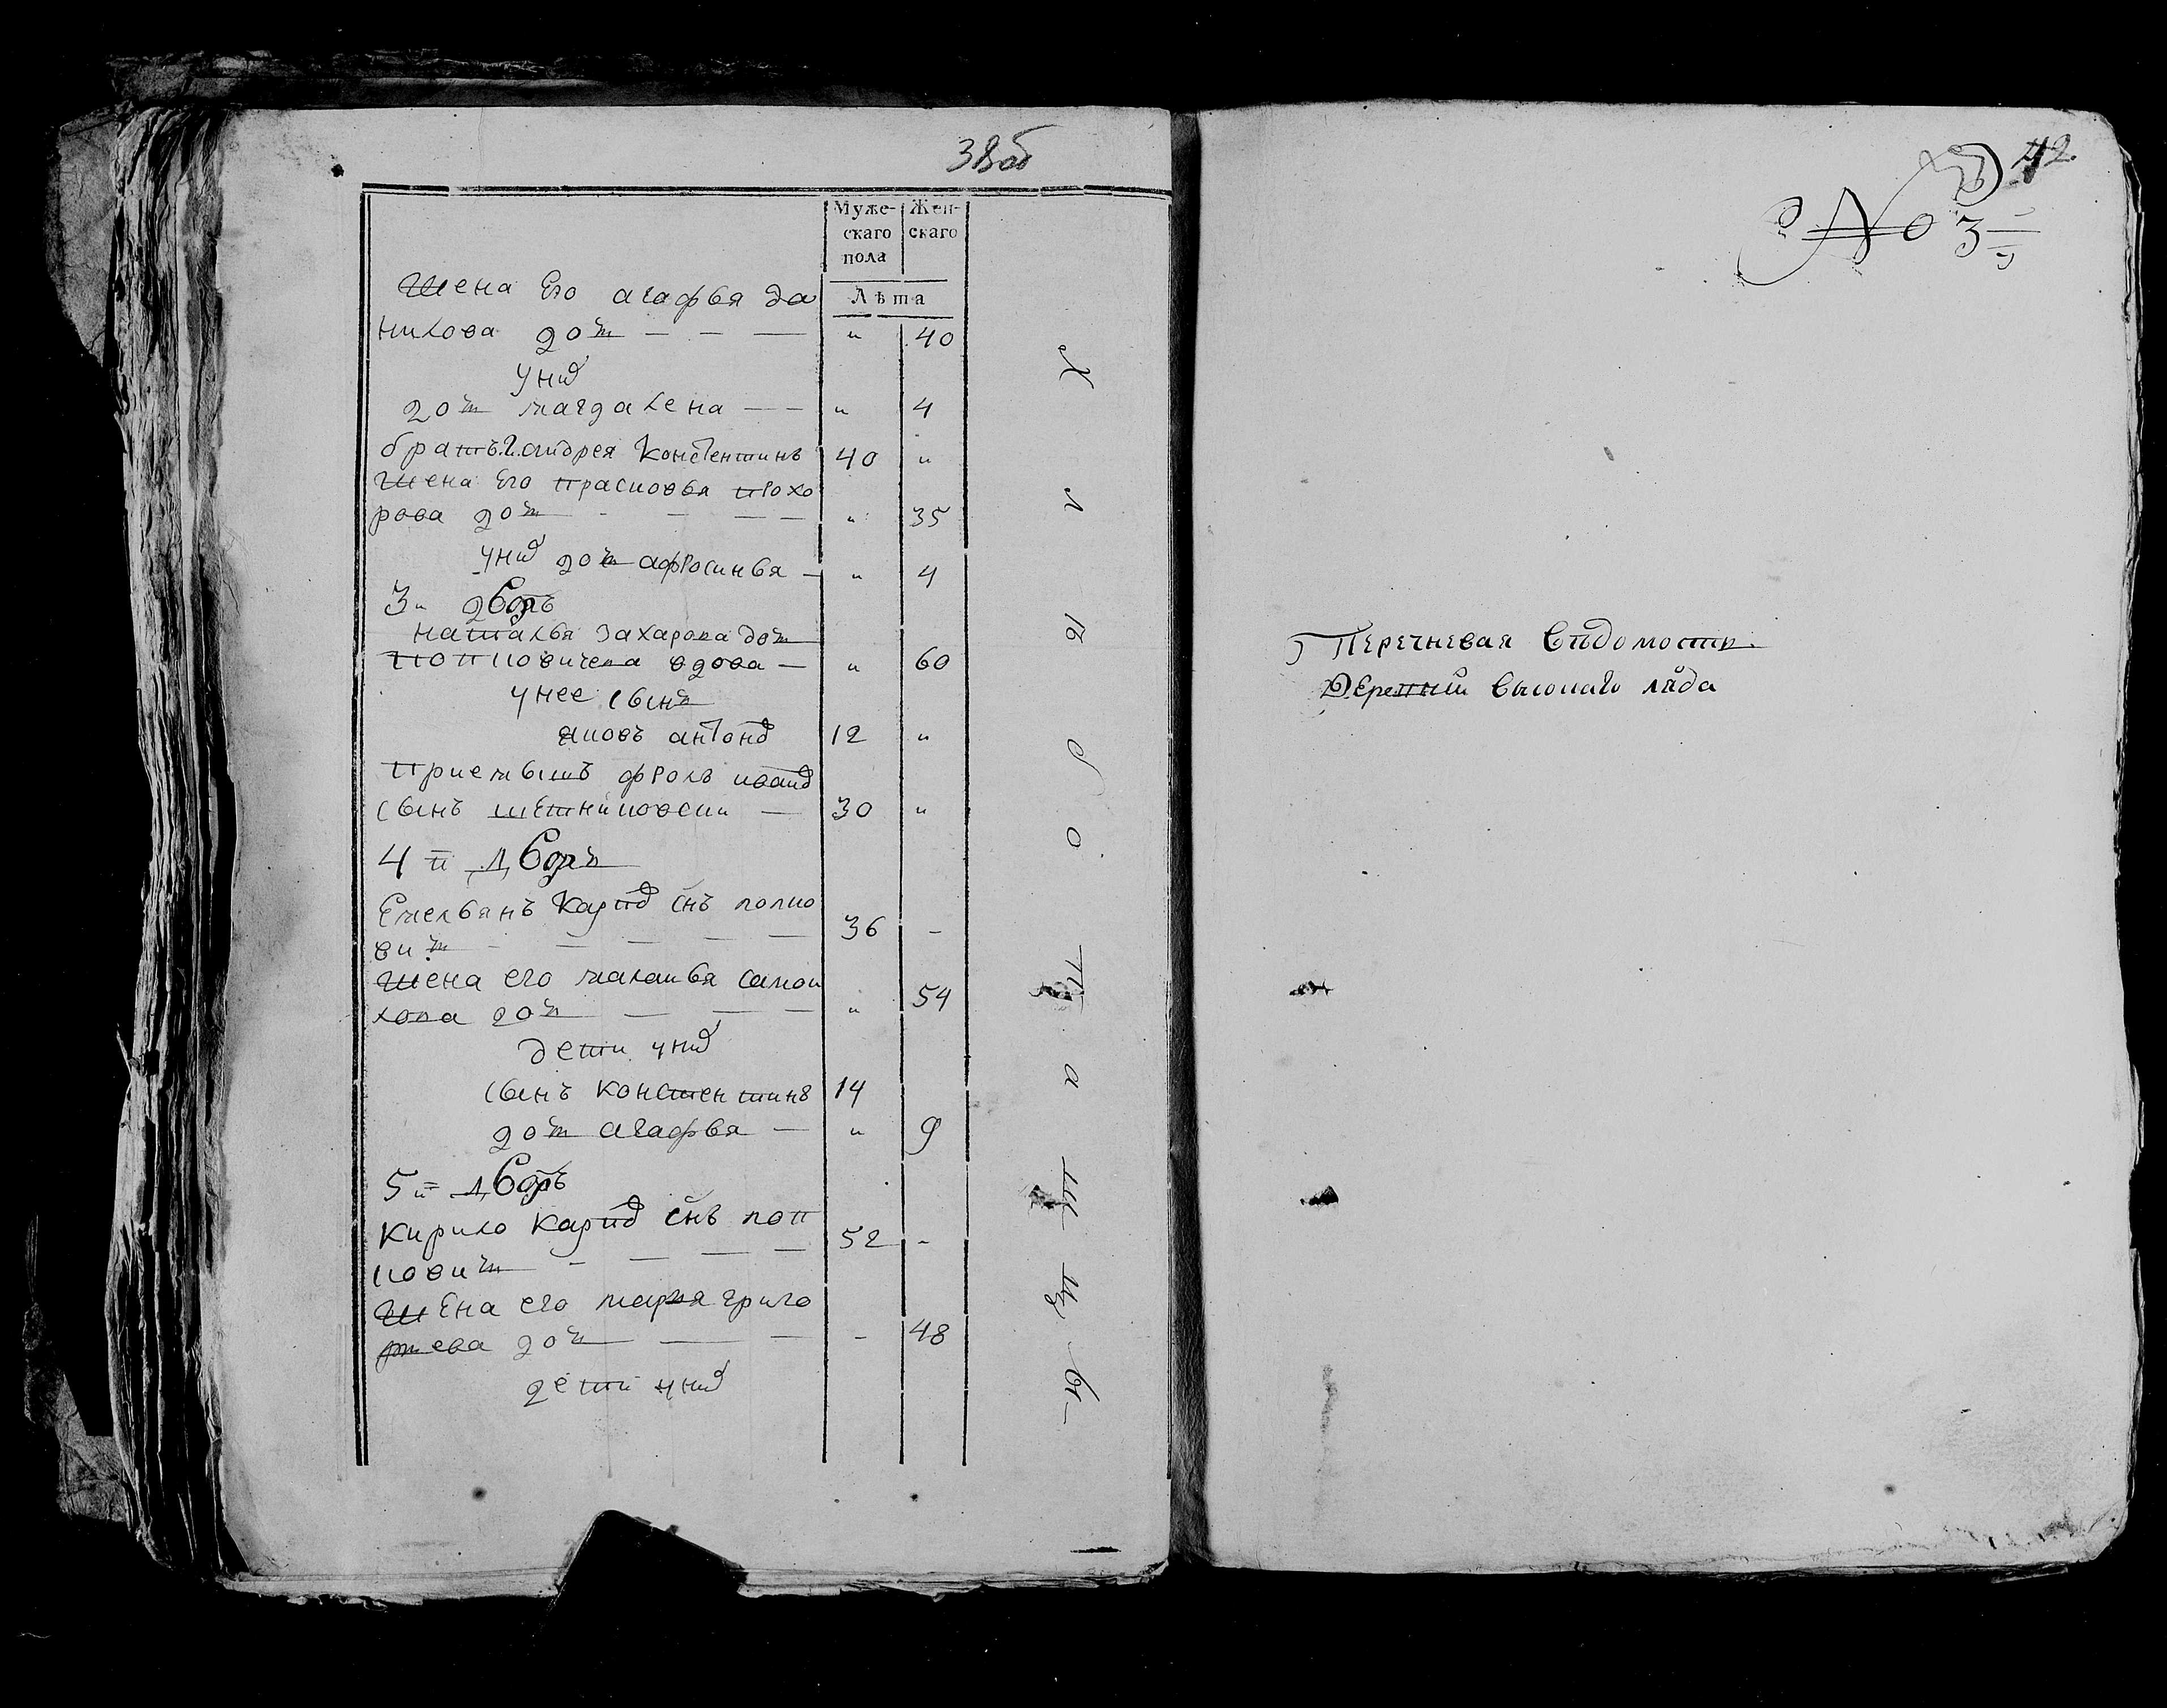 38об
Муже- Жен-
скаго скаго
пола
Лѣта
Жена Его агафья да
нилова доч — — — " 40
у них
доч магдалена — — " 4
братъ андрея Констентинъ 40 "
Жена Его прасковья прохо
рова доч — — — " 35
у них доч афросинья — " 4
3й дворъ
наталья захарова доч
попковичева вдова — " 60
у нее сыня
яковъ антонов 12 "
Приемышъ фролъ иванов
сынъ шетниковски — 30 "
4й Дворъ
Емельянъ Карпов снъ попко
вич — — — — 36 -
жена его маланья самои
лова доч — — — " 54
дети у них
сынъ констентинъ 14
доч агафья — " 9
5й Дворъ
Кирило Карпов снъ поп
кович — — — — 52 -
Жена его мария григо
рьева доч — — - 48
дети у них
42
№ 3
Перечневая вѣдомость
Деревни высокаго ляда